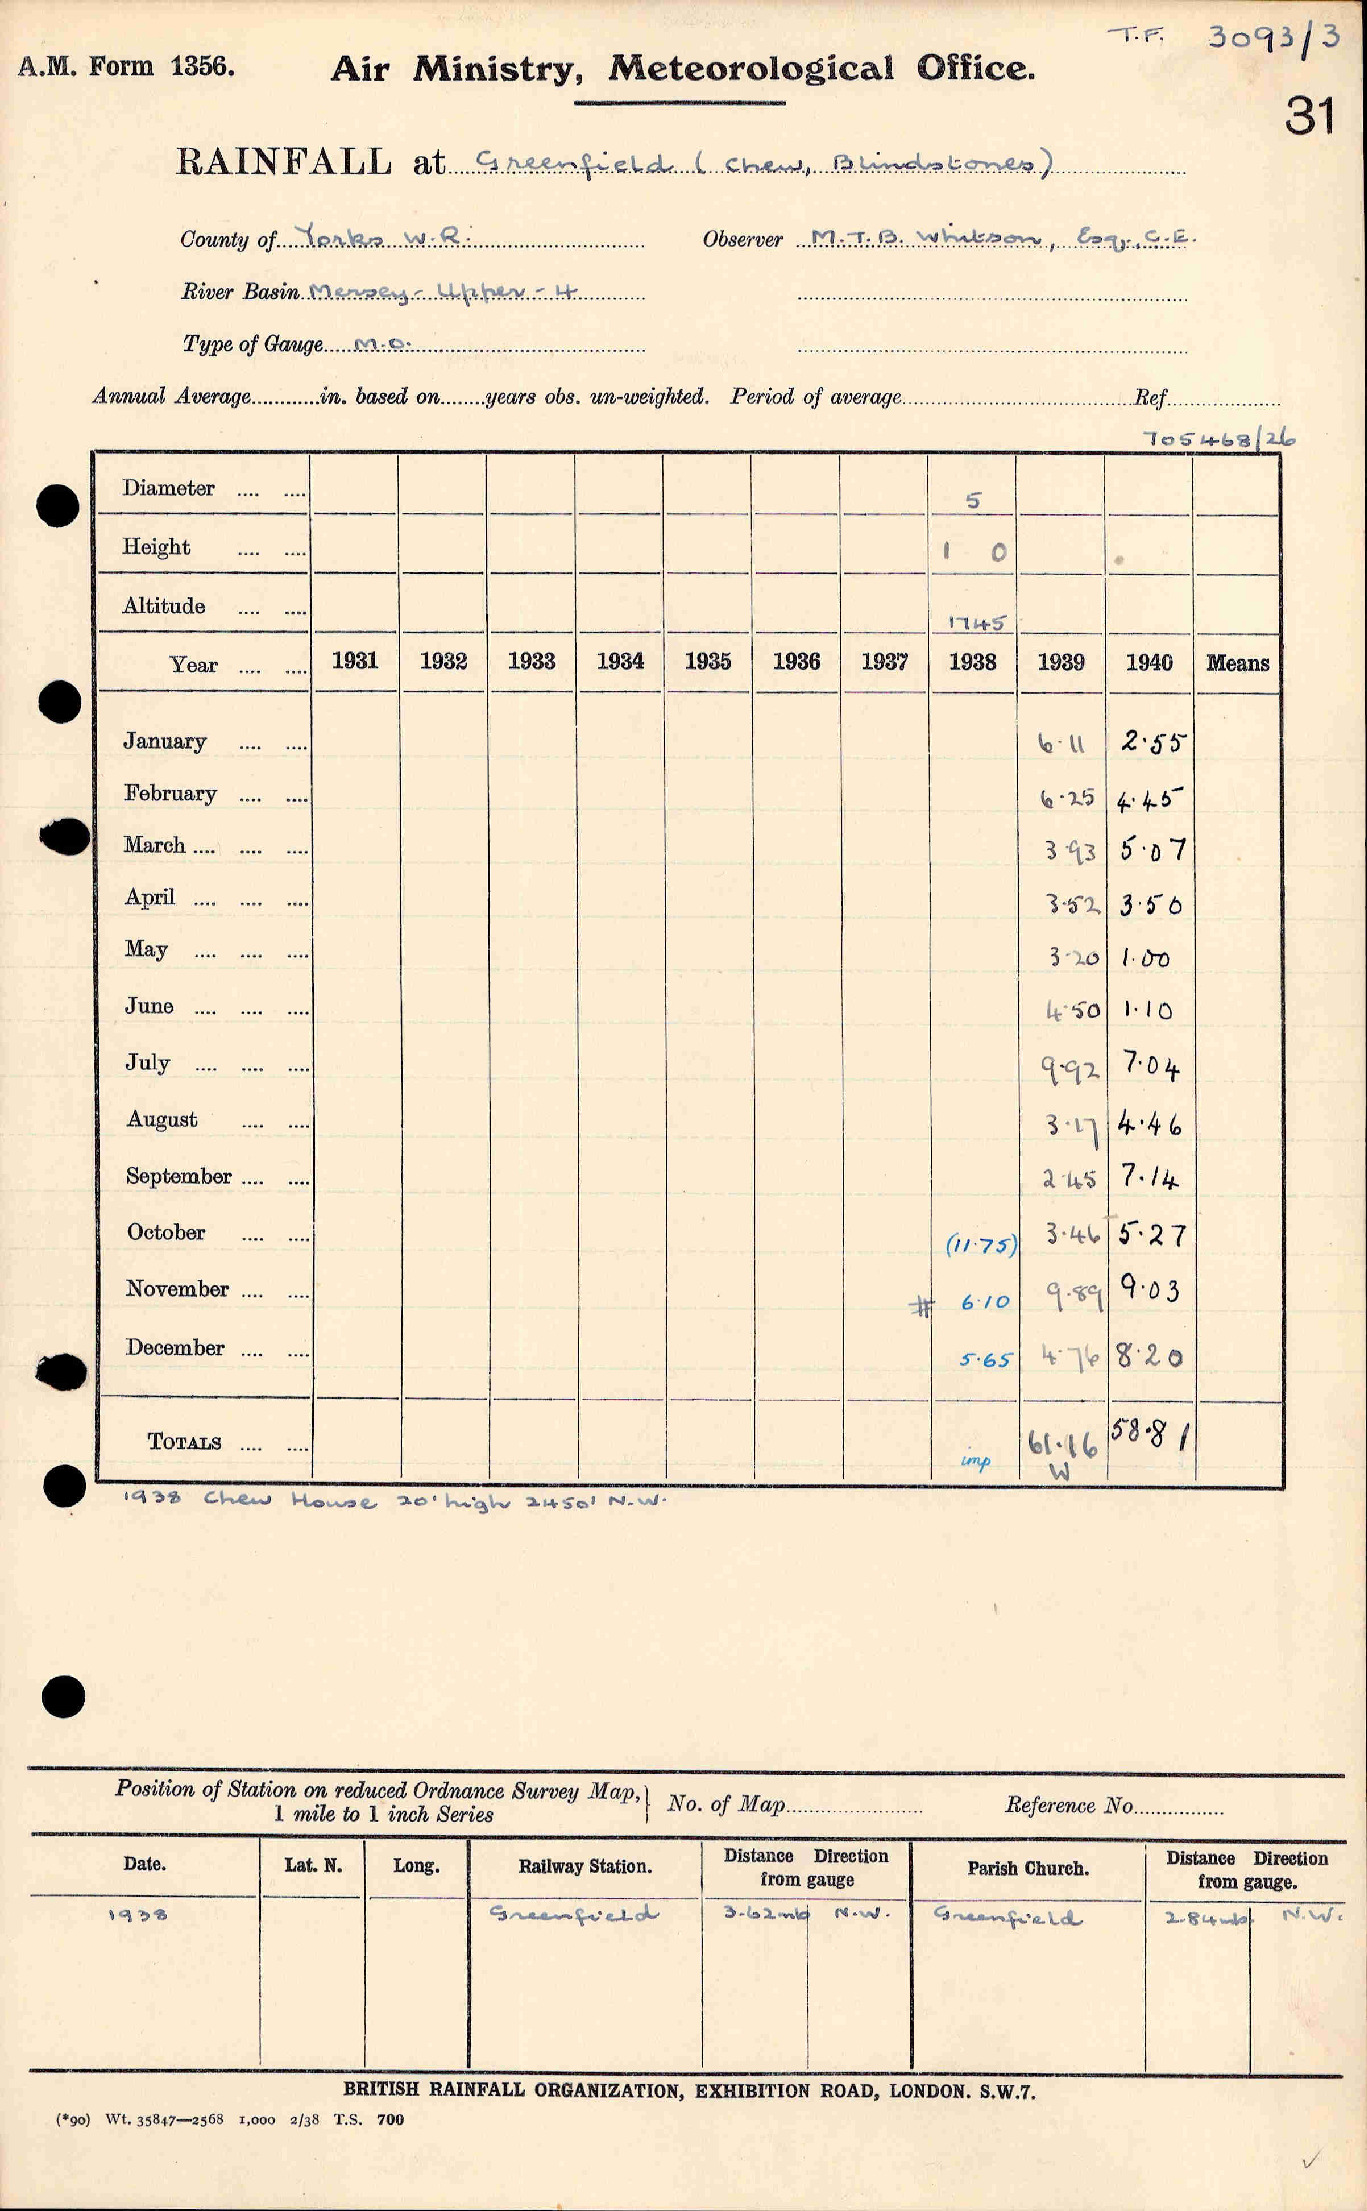 T.F. 3093/3
A.M. Form 1356. Air Ministry, Meteorological Office.
31
RAINFALL at Greenfield (Chew, Blindstones)
County of Yorks W.R. Observer M.T.B. Whitson, Esq., C.E.
River Basin Mersey - Upper - 4
Type of Gauge M.O.
Annual Average...........in. based on.......years obs. un-weighted. Period of average...................Ref...................
705468/26
Diameter .... .... 5
Height .... .... 1 0
Altitude .... .... 1745
Year .... .... 1931 1932 1933 1934 1935 1936 1937 1938 1939 1940 Means
January .... .... 6·11 2·55
February .... .... 6·25 4·45
March .... .... .... 3·93 5·07
April .... .... .... 3·52 3·50
May .... .... .... 3·20 1·00
June .... .... .... 4·50 1·10
July .... .... .... 9·92 7·04
August .... .... 3·17 4·46
September .... .... 2·45 7·14
October .... .... (11·75) 3·46 5·27
November .... .... # 6·10 9·89 9·03
December .... .... 5·65 4·76 8·20
TOTALS .... .... imp 61·16 58·81
W
1938 Chew House 20' high 2450' N.W.
Position of Station on reduced Ordnance Survey Map,} No. of Map....................... Reference No................
1 mile to 1 inch Series
Date. Lat. N. Long. Railway Station. Distance Direction from gauge Parish Church. Distance Direction from gauge.
1938 Greenfield 3.62 mls N.W. Greenfield 2.84 mls N.W.
BRITISH RAINFALL ORGANIZATION, EXHIBITION ROAD, LONDON. S.W.7.
(*90) Wt. 35847—2568 1,000 2/38 T.S. 700